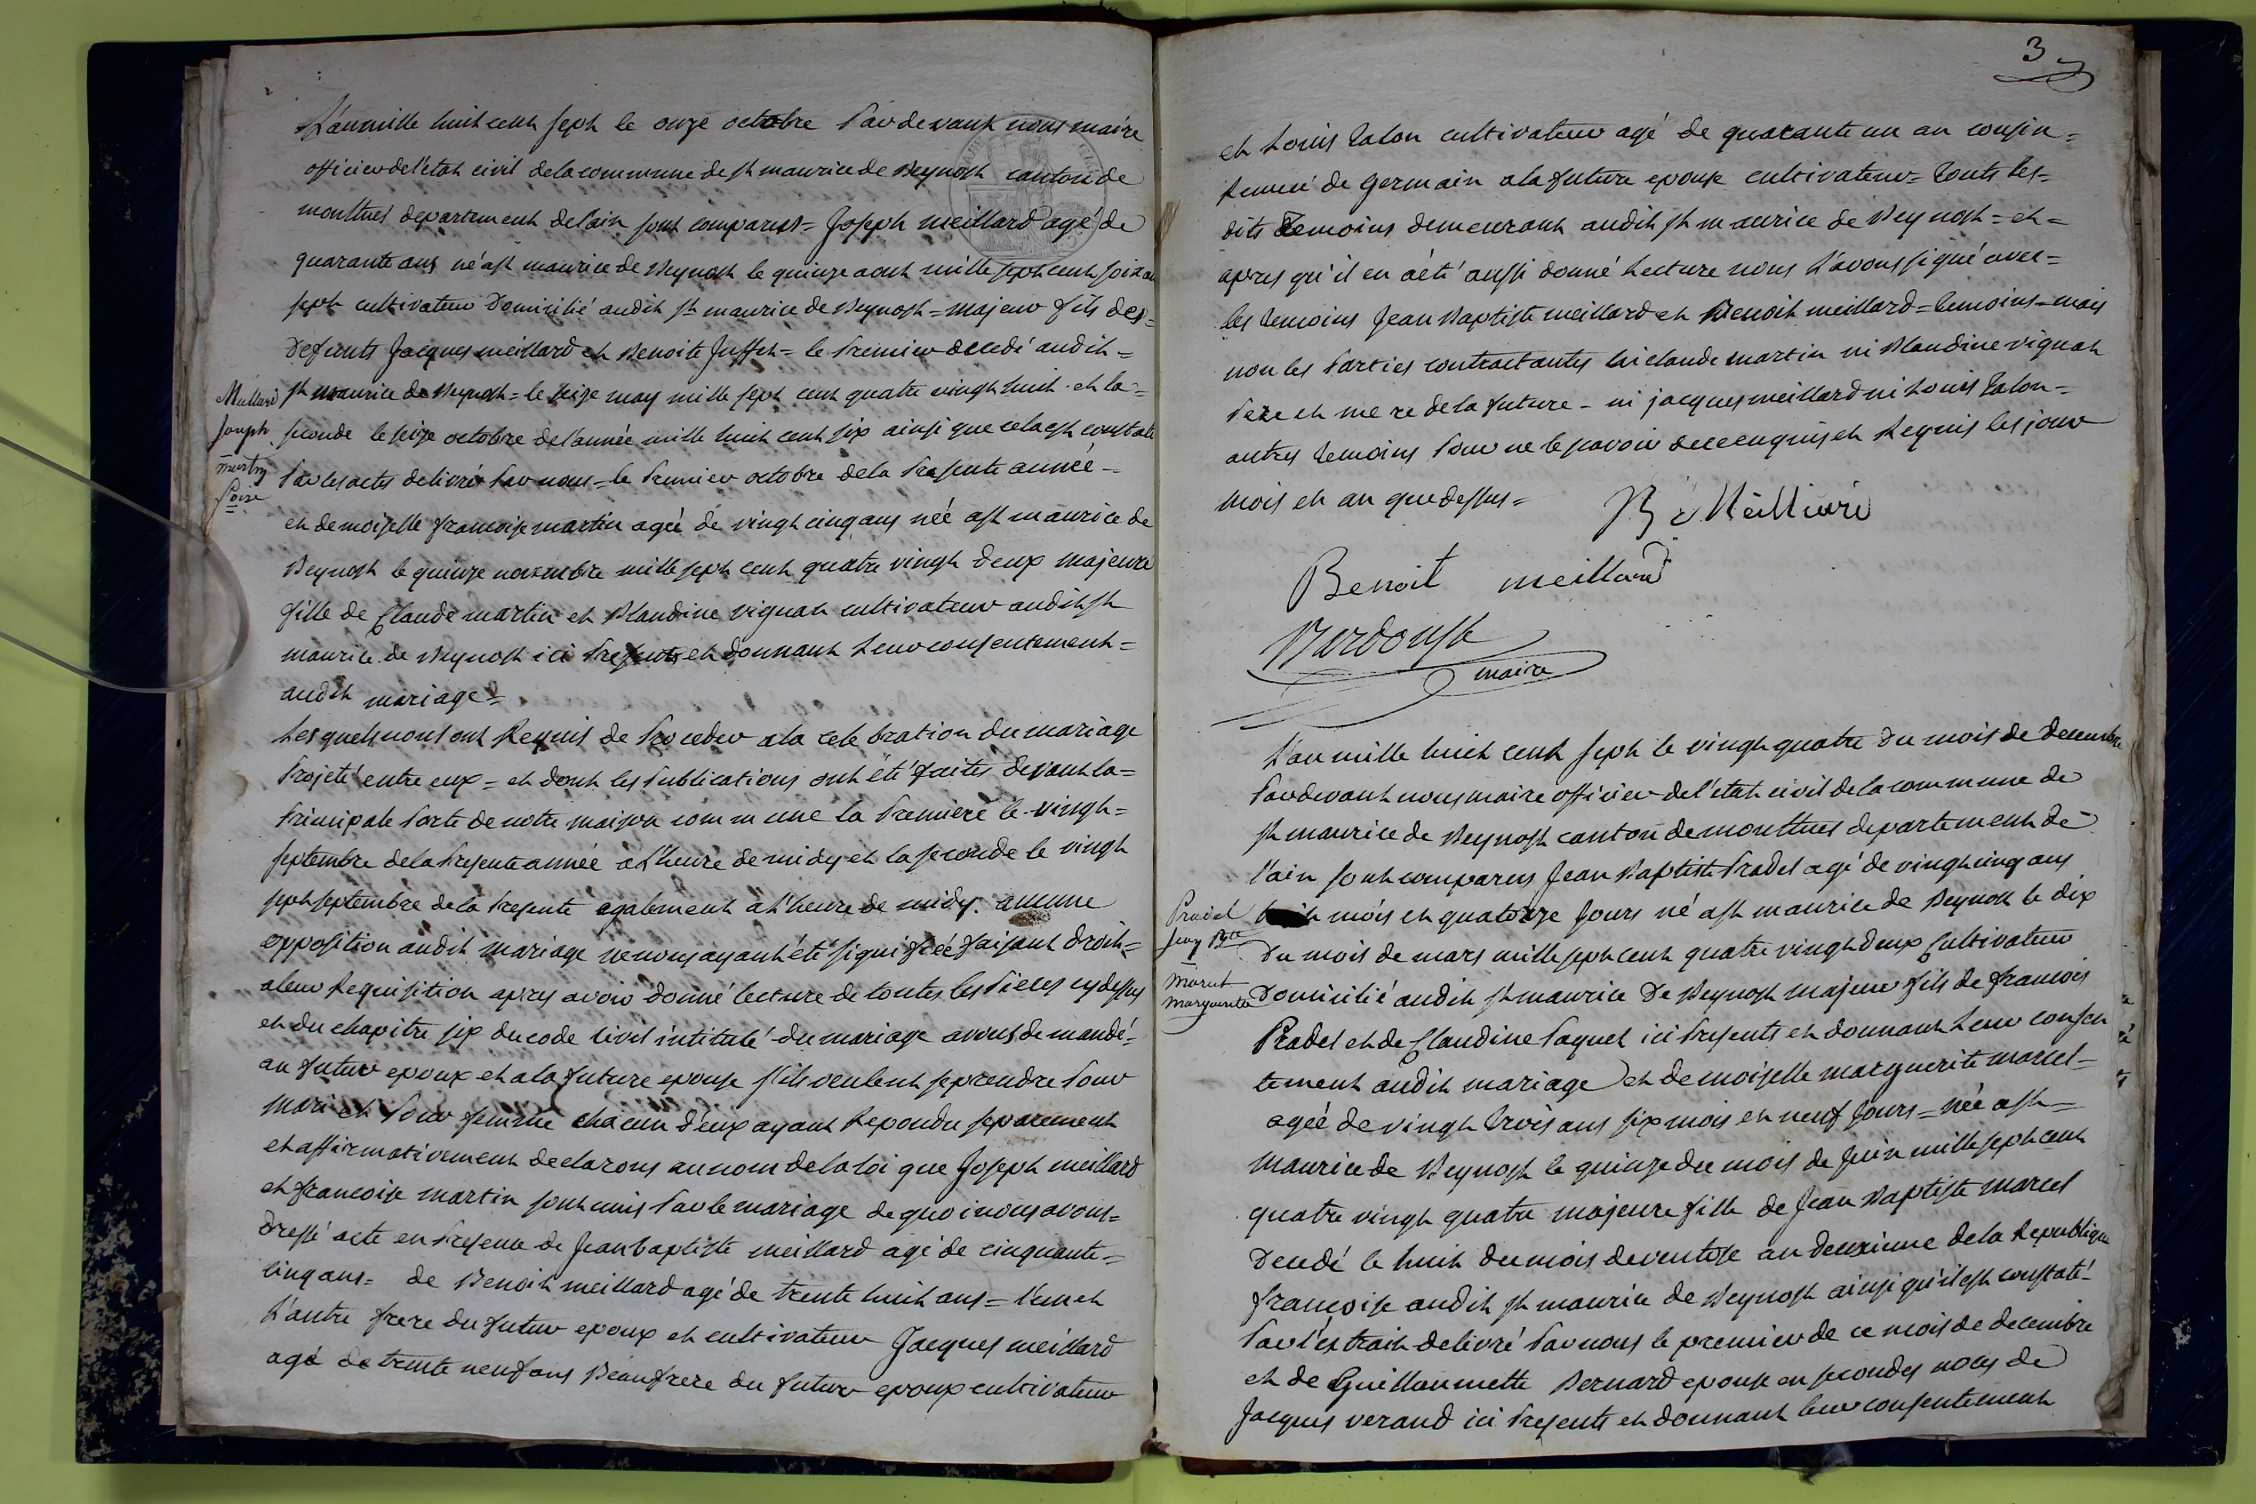 L'an mille huit cent sept le onze octobre Par devant nous maire
officier de l'état civil de la commune de st maurice de Beynost canton de
montluel departement de l'ain sont comparus = Joseph meillard agé de
quarante ans né a st maurice de Beynost le quinze aout mille sept cent soixante
sept cultivateur Domicilié audit st maurice de Beynost = majeur fils des =
Defunts Jacques meillard et Benoite Juffet = le Premier decedé audit =
Joseph
st maurice de Beynost = le seize may mille sept cent quatre vingt huit . et la =
seconde le seize octobre de l'année mille huit cent six ainsi que cela est constaté
Par les actes delivré Par nous = le Premier octobre de la Presente année =
et demoiselle francoise martin ageé de vingt cinq ans neé a st maurice de
Beynost le quinze novembre mille sept cent quatre vingt deux majeure
fille de Claude martin et Blandine vignat cultivateur audit st
maurice de Beynost ici Presents et donnant Leur consentement =
audit mariage =
Lesquels nous ont Requis de Proceder a la celebration du mariage
Projeté entre eux = et dont les Publications ont été faites devant la =
Principale Porte de notre maison commune la Premiere le vingt =
septembre de la Presente année a l'heure de midy et la seconde le vingt
sept septembre de la Presente egalement a l'heure de midy. aucune
opposition audit mariage ne nous ayant été signifiéé faisant droit =
a leur Requisition apres avoir donné lecture de toutes les Pieces cy dessus
et du chapitre six du code civil intitulé du mariage avons demandé =
au futur epoux et a la future epouse s'ils veulent se prendre Pour
mari et Pour femme chacun d'eux ayant Repondu separement
et affirmativement declarons au nom de la loi que Joseph meillard
et francoise martin sont unis Par le mariage de quoi nous avons =
dressé acte en Presence de Jean baptiste meillard agé de cinquante =
cinq ans = de Benoit meillard agé de trente huit ans = l'un et
L'autre frere du futur epoux et cultivateur Jacques meillard
agé de trente neuf ans Beaufrere du futur epoux cultivateur
3
et Louis Talon cultivateur agé de quarante un an cousin =
Remué de Germain a la future epouse cultivateur = Touts les =
dits Temoins demeurant audit st maurice de Beynost = et =
apres qu'il en a été aussi donné Lecture nous L'avons signé avec =
les temoins Jean Baptiste meillard et Benoit meillard = temoins = mais
non les Parties contractantes ni claude martin ni Blandine vignat
Pere et mere de la future = ni jacques meillard ni Louis Talon =
autres temoins Pour ne le savoir de ce enquis et Requis les jour
mois et an que dessus =
Benoit meillard
maire
L'an mille huit cent sept le vingt quatre du mois de decembre
Par devant nous maire officier de l'état civil de la commune de
st maurice de Beynost canton de montluel departement de
l'ain sont comparus Jean Baptiste Pradel agé de vingt cinq ans
Pradel
Jean Bte
Marcel
Marguerite
huit mois et quatorze Jours né a st maurice de Beynost le dix
Du mois de mars mille sept cent quatre vingt deux Cultivateur
Domicilié audit st maurice De Beynost majeur fils de francois
Pradel et de Claudine Paquet ici Presents et donnant Leur consen
tement audit mariage et demoiselle marguerite marcel =
ageé de vingt trois ans six mois et neuf Jours = née a st =
maurice de Beynost le quinze du mois de Juin mille sept cent
quatre vingt quatre majeure fille de Jean Baptiste marcel
Decedé le huit du mois de ventose an deuxieme de la Republique
françoise audit st maurice de Beynost ainsi qu'il est constaté =
Par l'extrait delivré Par nous le premier de ce mois de decembre
et de Guillaumette Bernard epouse en secondes noces de
Jacques verand ici Presents et donnant leur consentement